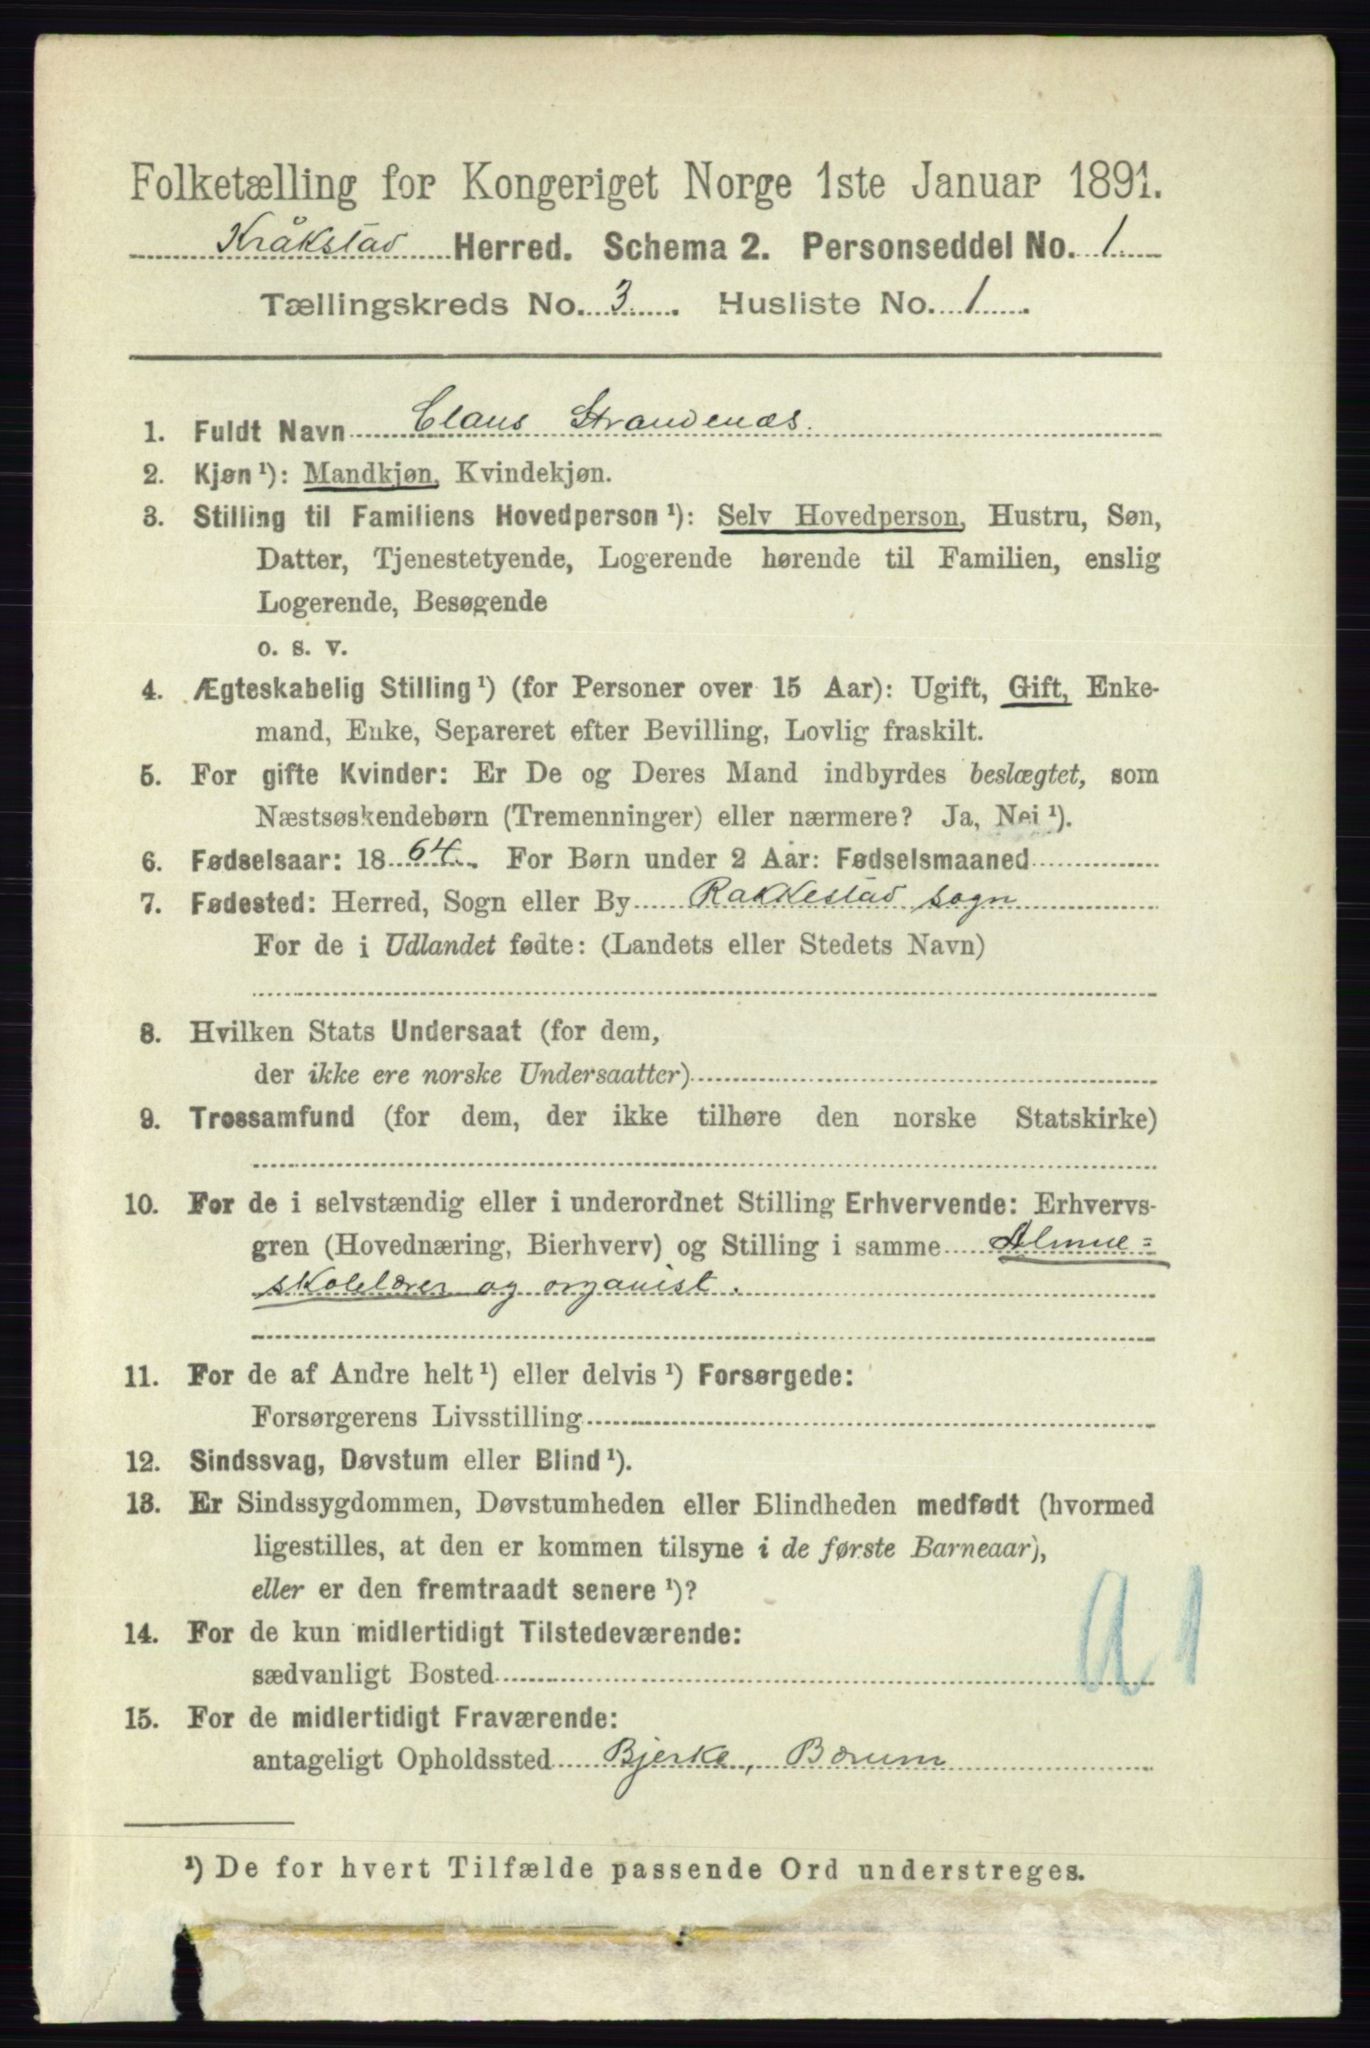 Folketælling for Kongeriget Norge 1ste Januar 1891.
Kråkstad Herred. Schema 2. Personseddel No. 1
Tællingskreds No. 3. Husliste No. 1.
1. Fuldt Navn Claus Strandenæs.
2. Kjøn¹): Mandkjøn, Kvindekjøn.
3. Stilling til Familiens Hovedperson¹): Selv Hovedperson, Hustru, Søn,
Datter, Tjenestetyende, Logerende hørende til Familien, enslig
Logerende, Besøgende
o. s. v.
4. Ægteskabelig Stilling¹) (for Personer over 15 Aar): Ugift, Gift, Enke-
mand, Enke, Separeret efter Bevilling, Lovlig fraskilt.
5. For gifte Kvinder: Er De og Deres Mand indbyrdes beslægtet, som
Næstsøskendebørn (Tremenninger) eller nærmere? Ja, Nei¹).
6. Fødselsaar: 1864. For Børn under 2 Aar: Fødselsmaaned
7. Fødested: Herred, Sogn eller By Rakkestad sogn
For de i Udlandet fødte: (Landets eller Stedets Navn)
8. Hvilken Stats Undersaat (for dem,
der ikke ere norske Undersaatter)
9. Trossamfund (for dem, der ikke tilhøre den norske Statskirke)
10. For de i selvstændig eller i underordnet Stilling Erhvervende: Erhvervs-
gren (Hovednæring, Bierhverv) og Stilling i samme Almue=
skolelærer og organist.
11. For de af Andre helt¹) eller delvis¹) Forsørgede:
Forsørgerens Livsstilling
12. Sindssvag, Døvstum eller Blind¹).
13. Er Sindssygdommen, Døvstumheden eller Blindheden medfødt (hvormed
ligestilles, at den er kommen tilsyne i de første Barneaar),
eller er den fremtraadt senere¹)?
14. For de kun midlertidigt Tilstedeværende:
sædvanligt Bosted
a 1
15. For de midlertidigt Fraværende:
antageligt Opholdssted Bjerke, Bærum
¹) De for hvert Tilfælde passende Ord understreges.